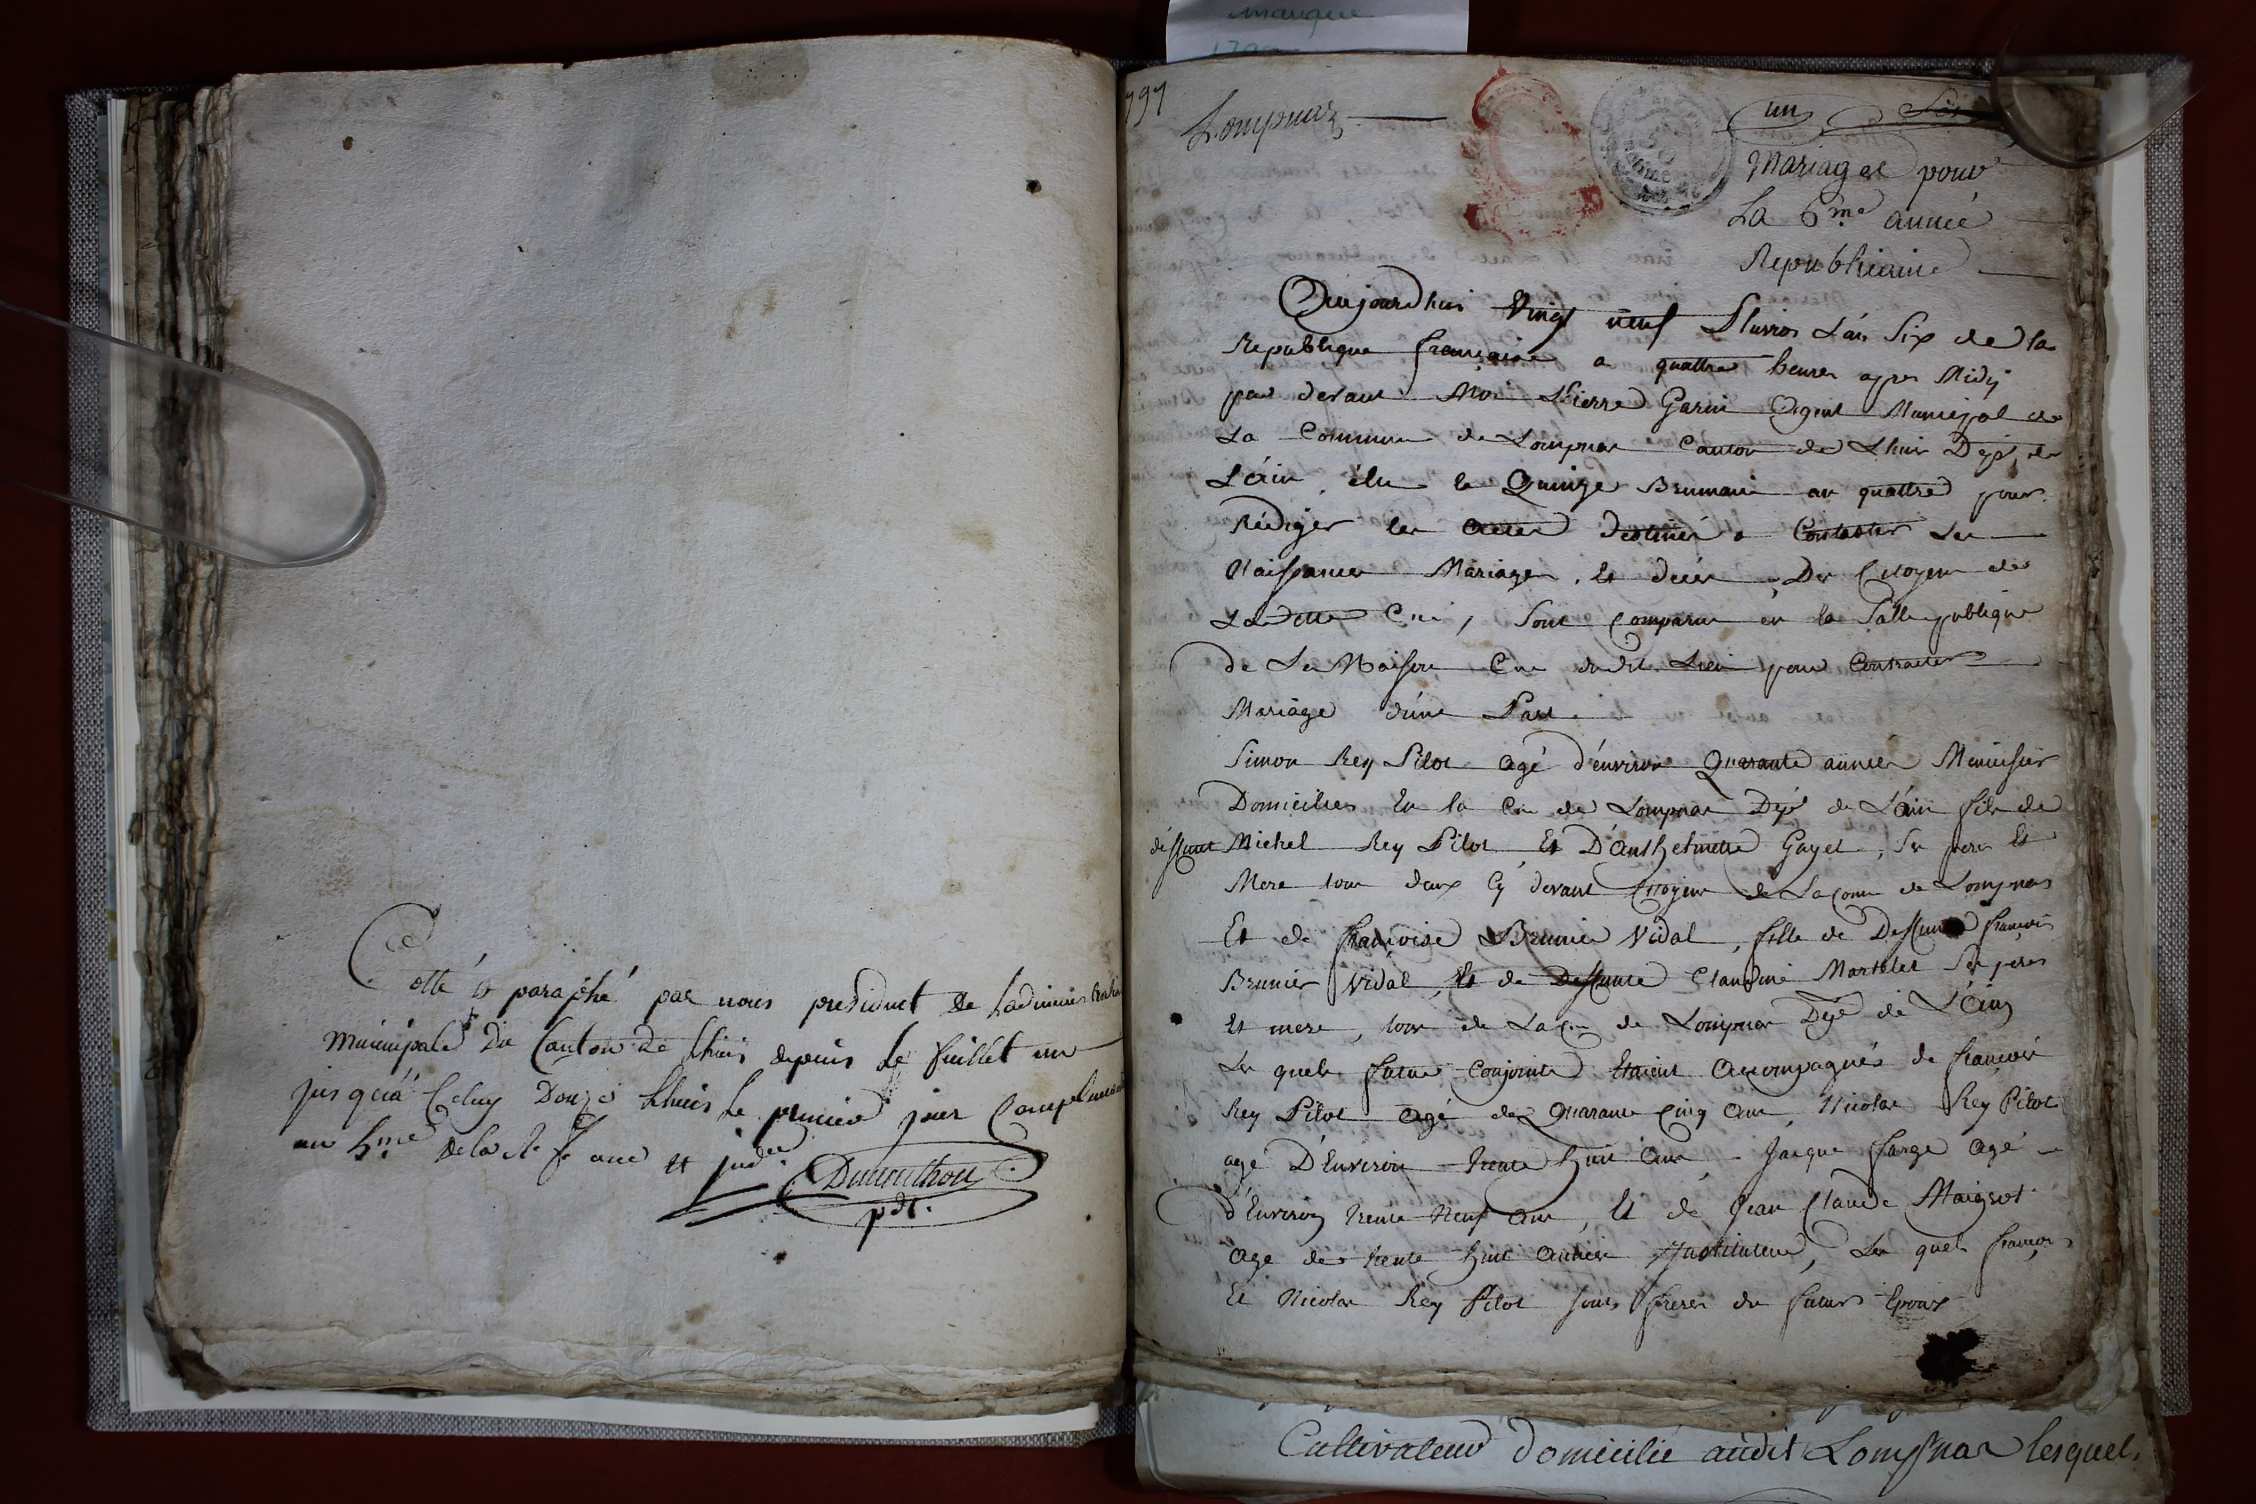 Cotté et paraphé par nous president de Ladminis
municipale du Canton de Lhuis depuis le feuillet un
jusqu'à Celuy Douze Lhuis le premier jour Complement
an 5.me De la R. f. une et ind.
Dumolthou
pdt.
manque
797
Lompnas
un
Mariages pour
La 6.me année
Republicaine
Aujourdhui Vingt neuf Pluvios L'an Six de la
Republique francaise a quattre heures apres Midy
par devant Moi Pierre Garin Agent Municipal de
La Commune de Lompnas Canton de Lhuis Dept. de
L'ain, élu le Quinze Brumaire an quattre pour
Rédiger les Actes destinés a Constater Les
Naissances Mariages, Et deces, Des Citoyens de
La ditte Cne, sont Comparus en la Salle publique
de La Maison Cne du dit Lieu pour Contracter
Mariage d'une Part.
Simon Rey Pilot agé d'environ Quarante années Menuisier
Domicilies En la Cne de Lompnas Dept de L'ain fils de
deffunt Michel Rey Pilot Et D'Anthelmette Gayet, Ses pere Et
Mere tous deux Cy devant Citoyens de La Come de Lompnas
Et de francoise Brunier Vidal, fille de Deffunt francois
Brunier Vidal, Et de Deffunte Claudine Martelet Ses peres
Et mere, tous de La Cne de Lompnas Dept de L'Ain
Les quels futurs Conjoints Etaient Accompagnés de francois
Rey Pilot agé de Quarante Cinq Ans Nicolas Rey Pilot
agé D'Environ trente huit Ans, Jacque farge Agé
d'Environ trente Neuf Ans, Et de Jean Claude Maigrot
Age de trente huit Années Instituteur, Les quels francois
Et Nicolas Rey Pilot sont freres du futur Epoux
Cultivateur domicilié audit Lompnas lesquels